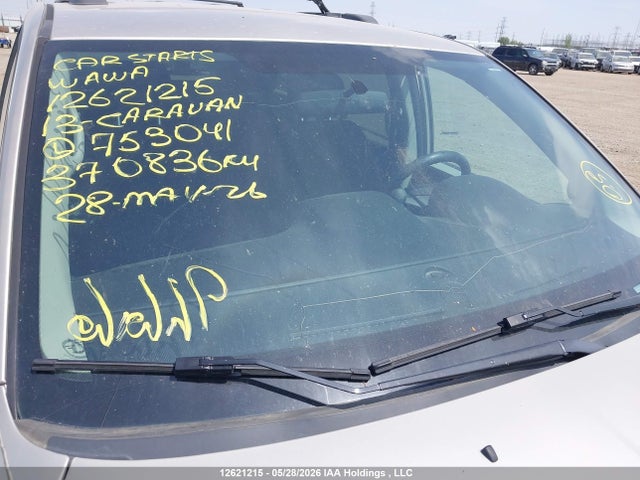 CAR STARTS
WAWA
12621215
13-CARAVAN
753041
370836KM
28-MAY-26
12621215 - 05/28/2026 IAA Holdings , LLC